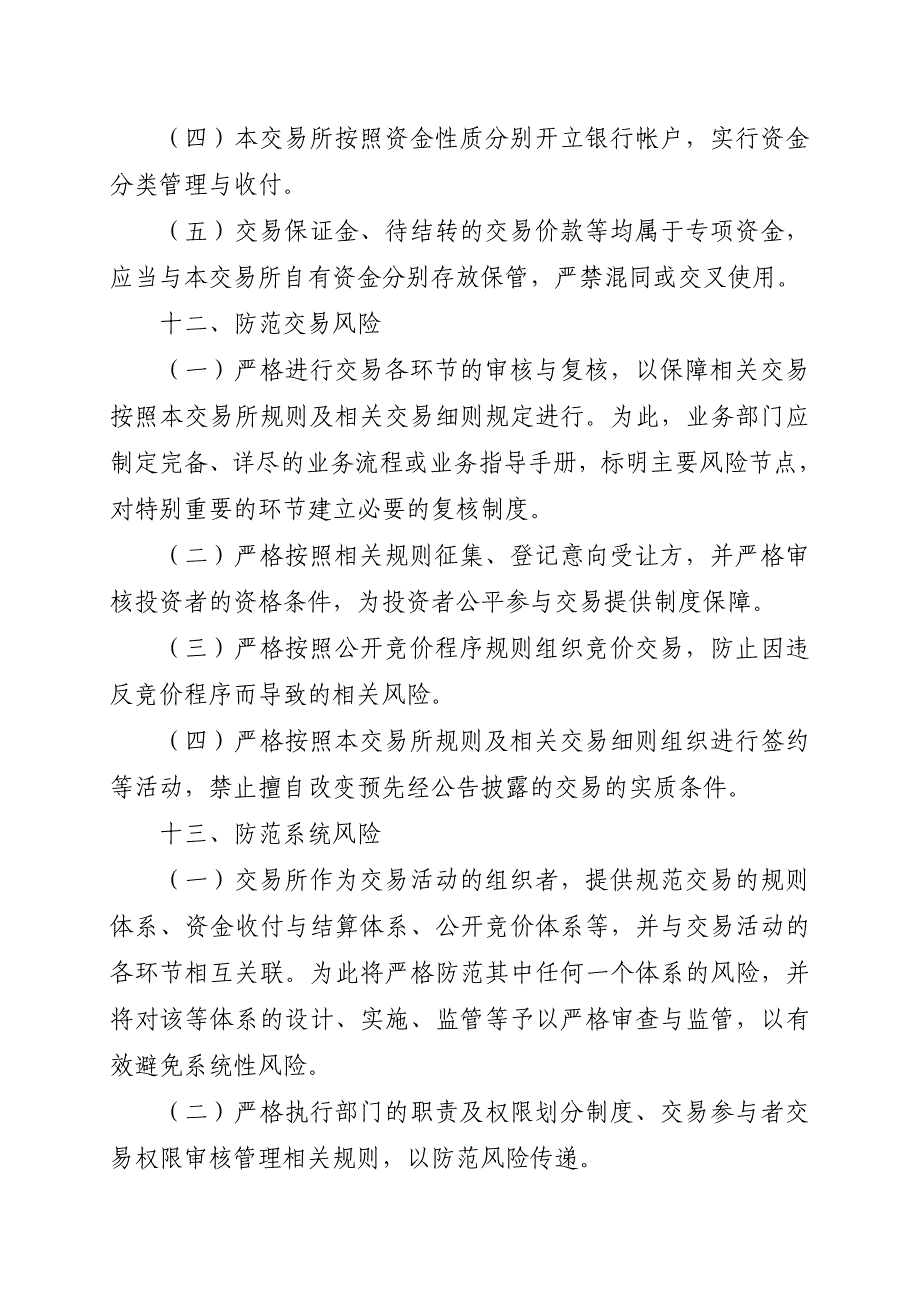 （四）本交易所按照资金性质分别开立银行帐户，实行资金
分类管理与收付。
（五）交易保证金、待结转的交易价款等均属于专项资金，
应当与本交易所自有资金分别存放保管，严禁混同或交叉使用。
十二、防范交易风险
（一）严格进行交易各环节的审核与复核，以保障相关交易
按照本交易所规则及相关交易细则规定进行。为此，业务部门应
制定完备、详尽的业务流程或业务指导手册，标明主要风险节点，
对特别重要的环节建立必要的复核制度。
（二）严格按照相关规则征集、登记意向受让方，并严格审
核投资者的资格条件，为投资者公平参与交易提供制度保障。
（三）严格按照公开竞价程序规则组织竞价交易，防止因违
反竞价程序而导致的相关风险。
（四）严格按照本交易所规则及相关交易细则组织进行签约
等活动，禁止擅自改变预先经公告披露的交易的实质条件。
十三、防范系统风险
（一）交易所作为交易活动的组织者，提供规范交易的规则
体系、资金收付与结算体系、公开竞价体系等，并与交易活动的
各环节相互关联。为此将严格防范其中任何一个体系的风险，并
将对该等体系的设计、实施、监管等予以严格审查与监管，以有
效避免系统性风险。
（二）严格执行部门的职责及权限划分制度、交易参与者交
易权限审核管理相关规则，以防范风险传递。